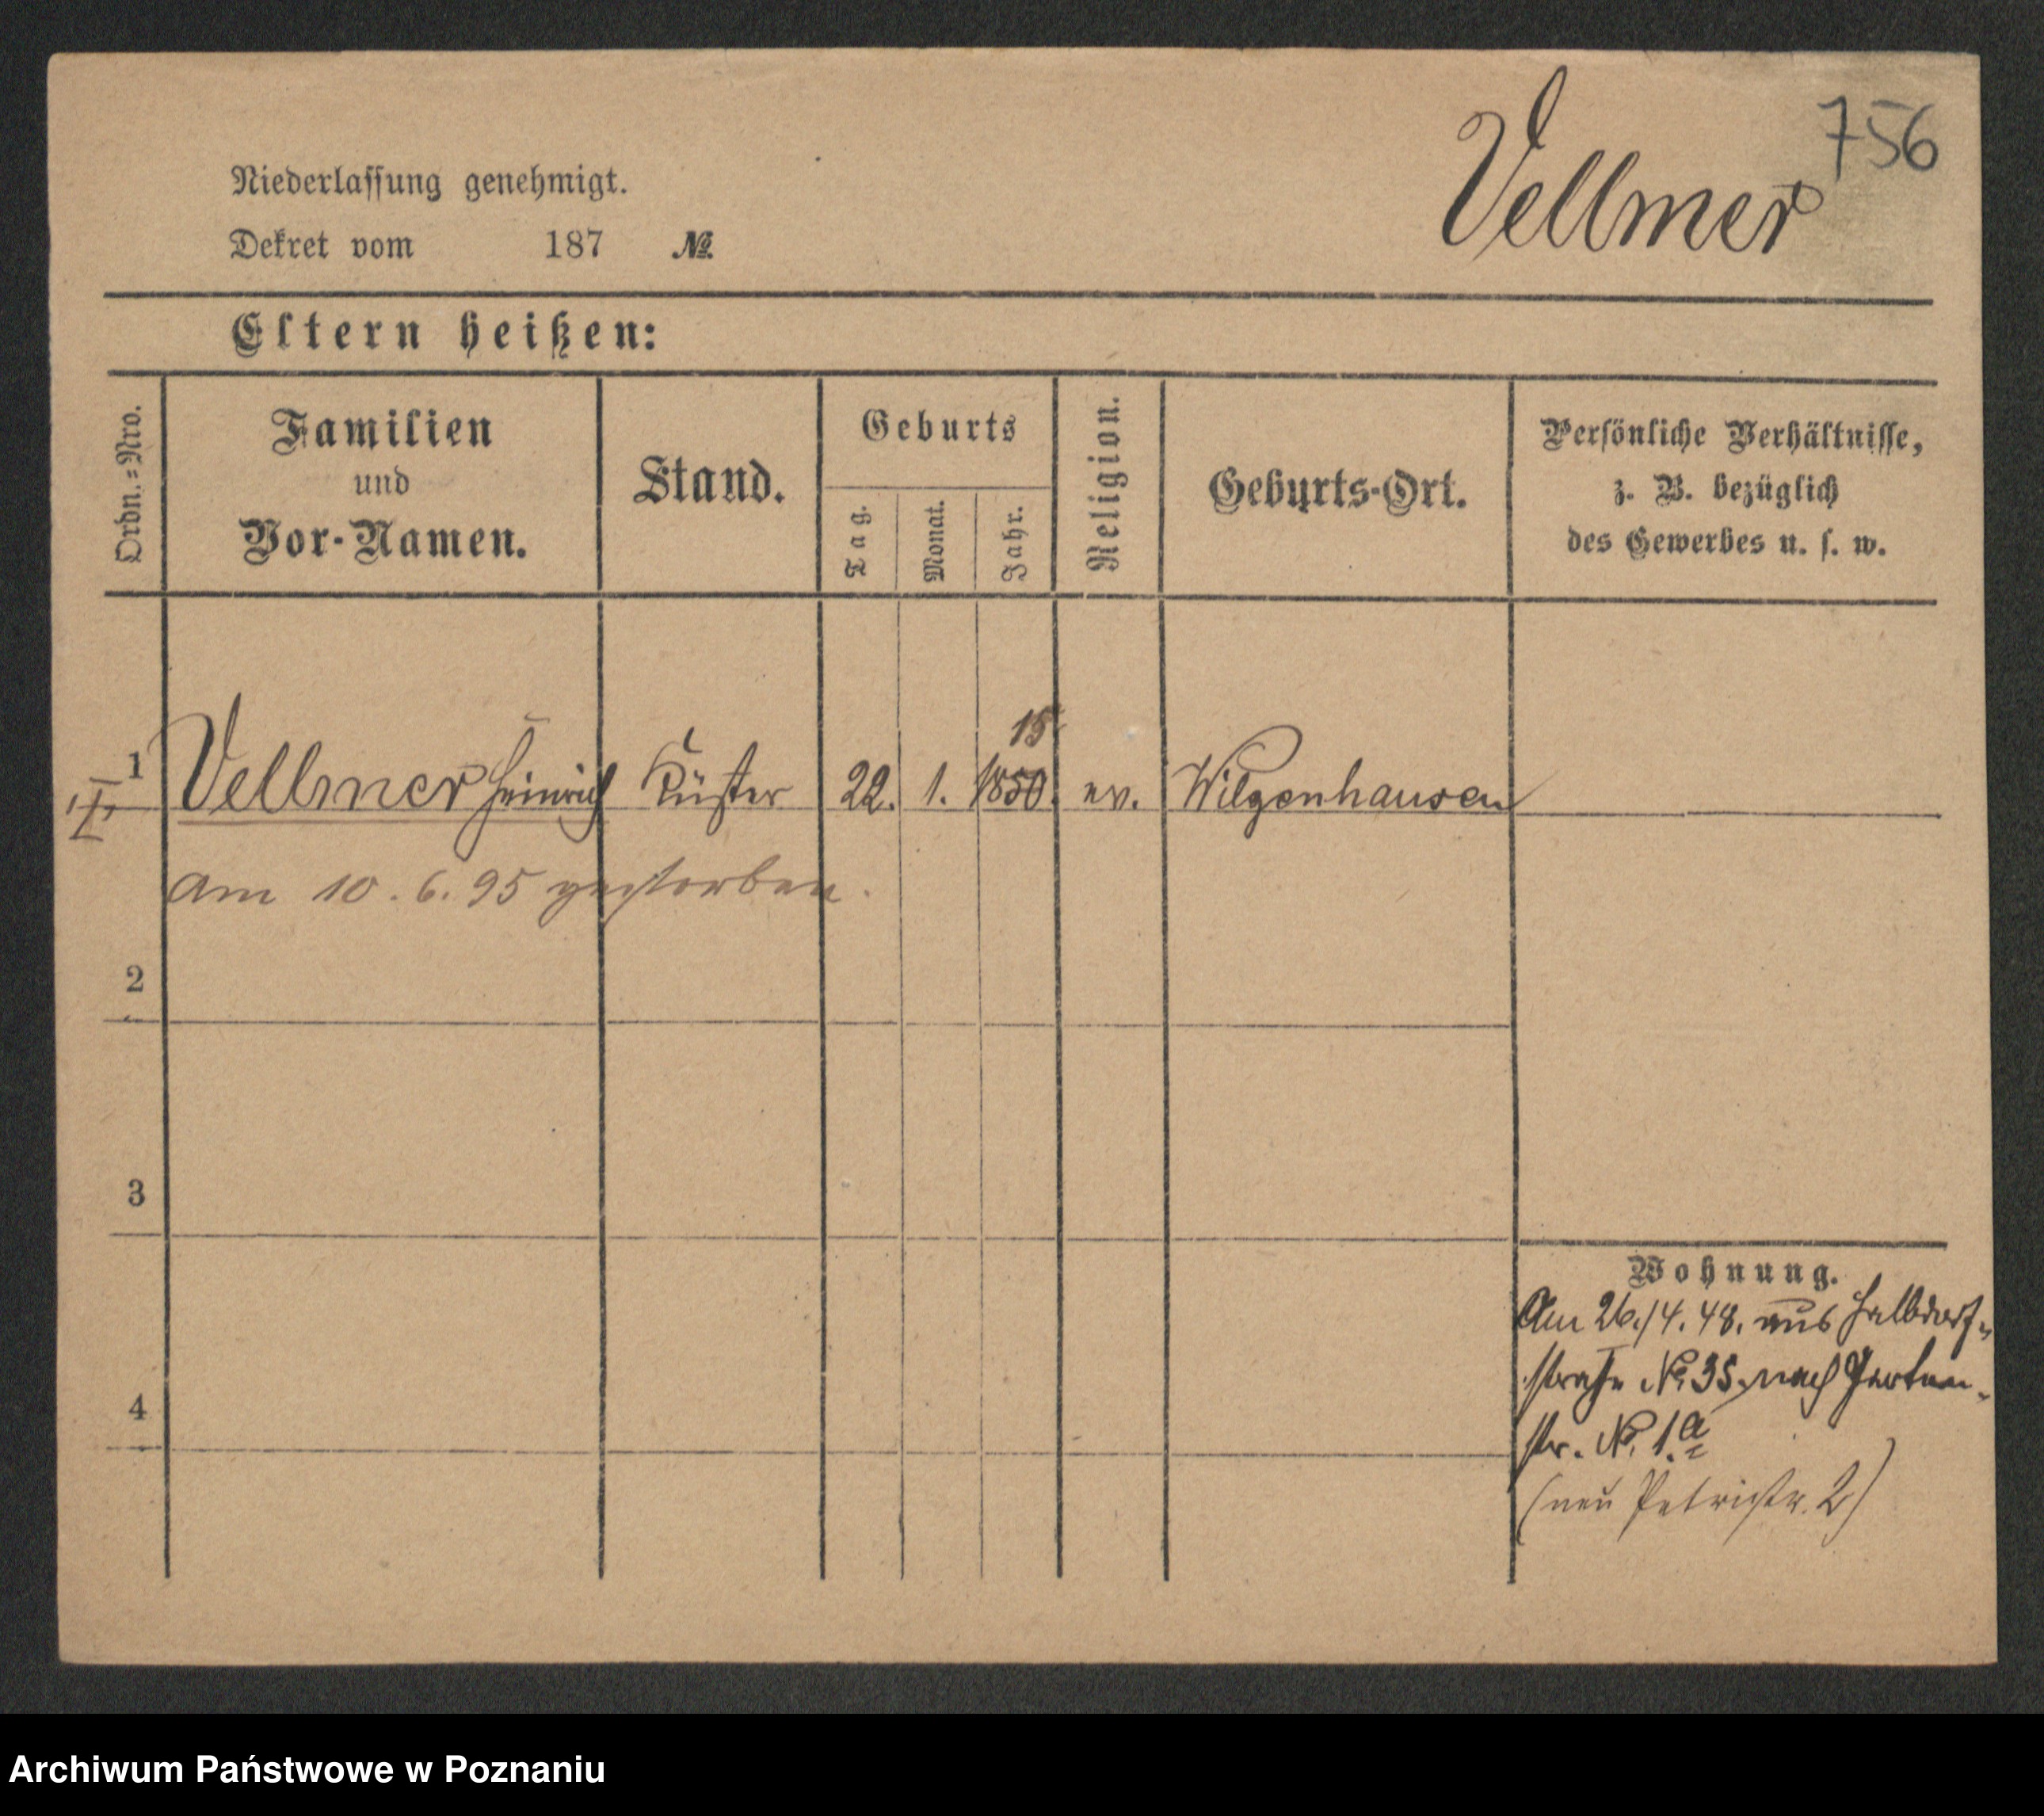 756
Vellmer
Niederlassung genehmigt.
Dekret vom 187 №
Eltern heißen:
Ordn.=Nro.
Familien und Vor-Namen.
Stand.
Geburts
Tag.
Monat.
Jahr.
Religion.
Geburts-Ort.
Persönliche Verhältnisse,
z. B. bezüglich
des Gewerbes u. s. w.
15
1 Vellmer Heinrich Küster 22. 1. 1850. ev. Wilgenhausen
Am 10. 6. 95 gestorben.
2
3
4
Wohnung.
Am 26./4. 48. aus Halbdorf-
straße № 35 nach Garten-
str. № 1.a
(neu Petristr. 2)
Archiwum Państwowe w Poznaniu